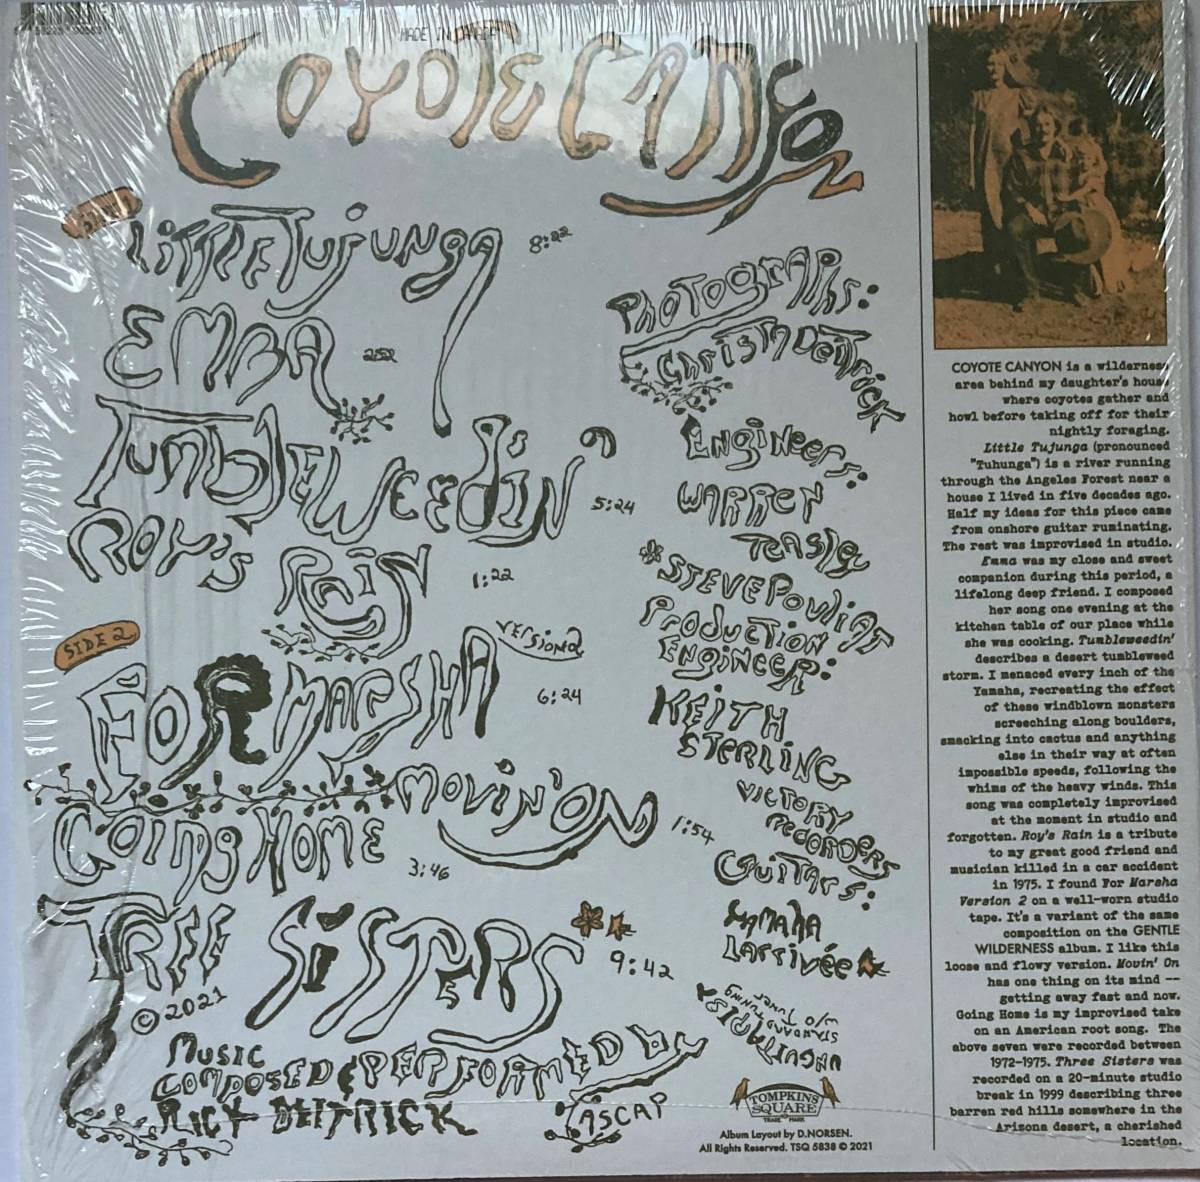 MADE IN CANADA
COYOTE CANYON
LITTLE TUJUNGA 8:22
EMMA 2:52
TUMBLEWEEDIN' 5:24
ROY'S RAIN 1:22
SIDE 2
FOR MARSHA VERSION 2 6:24
MOVIN' ON 1:54
GOING HOME 3:46
TREE SISTERS ** 9:42
© 2021
MUSIC
COMPOSED & PERFORMED by
RICK DEITRICK
ASCAP
PHOTOGRAPHS:
CHRISTY DEITRICK
ENGINEERS:
WARREN
TEASLEY
*STEVE POULIOT
PRODUCTION
ENGINEER:
KEITH
STERLING
VICTORY
RECORDERS
GUITARS:
YAMAHA
LARRIVÉE*
TOMPKINS
SQUARE
TRADE MARK
Album Layout by D.NORSEN.
All Rights Reserved. TSQ 5838 © 2021
COYOTE CANYON is a wilderness
area behind my daughter's house
where coyotes gather and
howl before taking off for their
nightly foraging.
Little Tujunga (pronounced
"Tuhunga") is a river running
through the Angeles Forest near a
house I lived in five decades ago.
Half my ideas for this piece came
from onshore guitar ruminating.
The rest was improvised in studio.
Emma was my close and sweet
companion during this period, a
lifelong deep friend. I composed
her song one evening at the
kitchen table of our place while
she was cooking. Tumbleweedin'
describes a desert tumbleweed
storm. I menaced every inch of the
Yamaha, recreating the effect
of these windblown monsters
screeching along boulders,
smacking into cactus and anything
else in their way at often
impossible speeds, following the
whims of the heavy winds. This
song was completely improvised
at the moment in studio and
forgotten. Roy's Rain is a tribute
to my great good friend and
musician killed in a car accident
in 1975. I found For Marsha
Version 2 on a well-worn studio
tape. It's a variant of the same
composition on the GENTLE
WILDERNESS album. I like this
loose and flowy version. Movin' On
has one thing on its mind --
getting away fast and now.
Going Home is my improvised take
on an American root song. The
above seven were recorded between
1972-1975. Three Sisters was
recorded on a 20-minute studio
break in 1999 describing three
barren red hills somewhere in the
Arizona desert, a cherished
location.